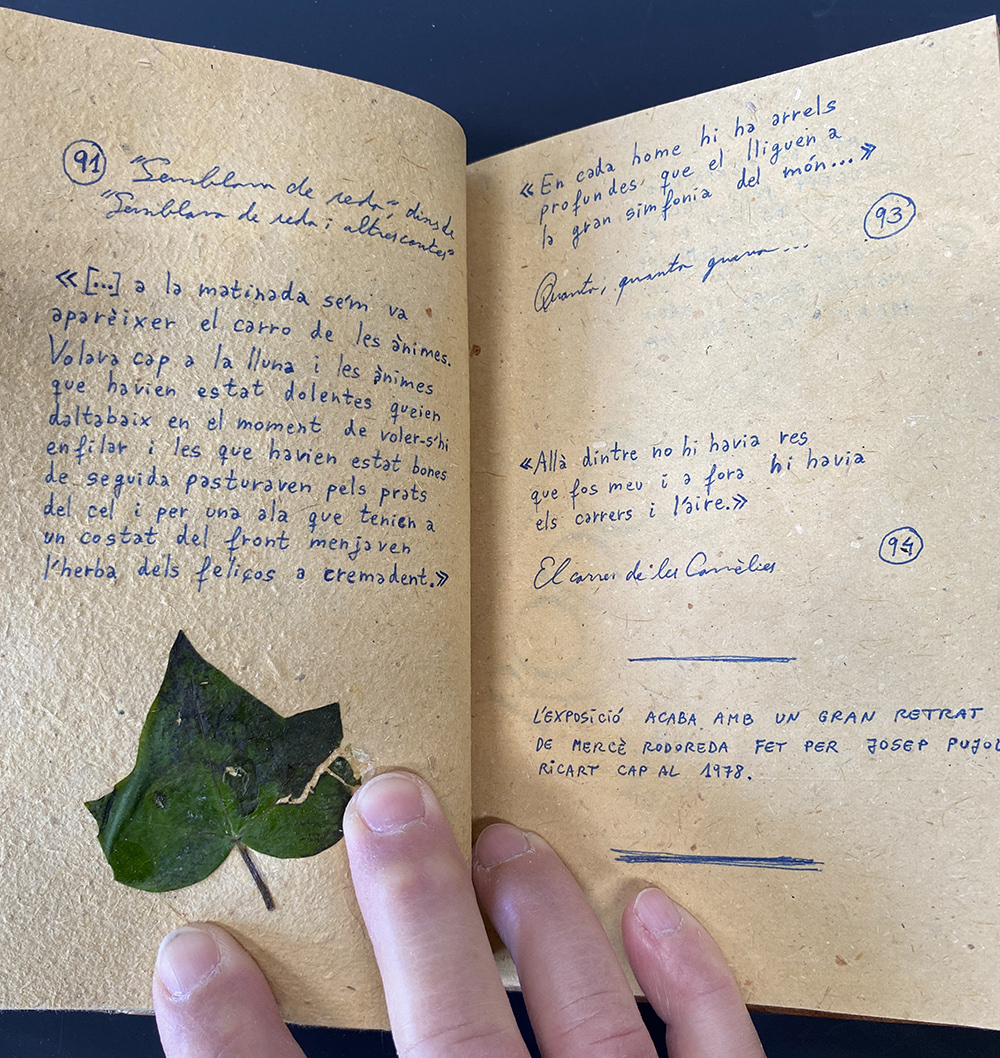 91
"Semblava de seda", dins de
"Semblava de seda i altres contes"
«[...] a la matinada se'm va
aparèixer el carro de les ànimes.
Volava cap a la lluna i les ànimes
que havien estat dolentes queien
daltabaix en el moment de voler-s'hi
enfilar i les que havien estat bones
de seguida pasturaven pels prats
del cel i per una ala que tenien a
un costat del front menjaven
l'herba dels feliços a cremadent.»
«En cada home hi ha arrels
profundes que el lliguen a
la gran simfonia del món...»
93
Quanta, quanta guerra...
«Allà dintre no hi havia res
que fos meu i a fora hi havia
els carrers i l'aire.»
94
El carrer de les Camèlies
L'EXPOSICIÓ ACABA AMB UN GRAN RETRAT
DE MERCÈ RODOREDA FET PER JOSEP PUJOL
RICART CAP AL 1978.